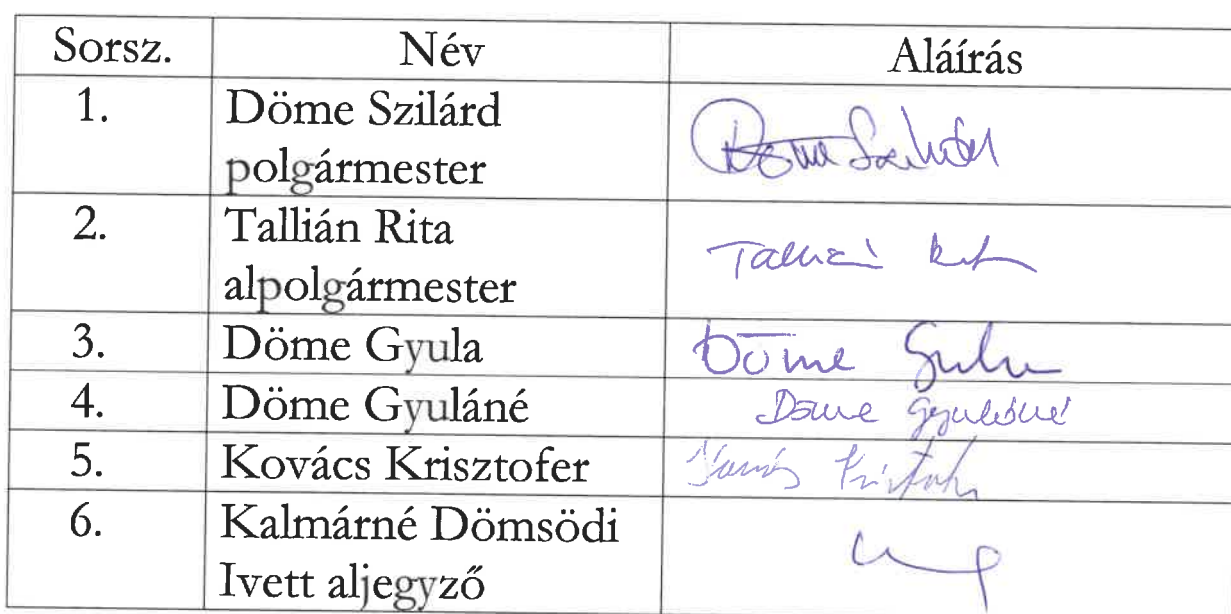 Sorsz. Név Aláírás
1. Döme Szilárd
polgármester
Döme Szilárd
2. Tallián Rita
alpolgármester
Tallián
3. Döme Gyula Döme Gyula
4. Döme Gyuláné Döme Gyuláné
5. Kovács Krisztofer
6. Kalmárné Dömsödi
Ivett aljegyző